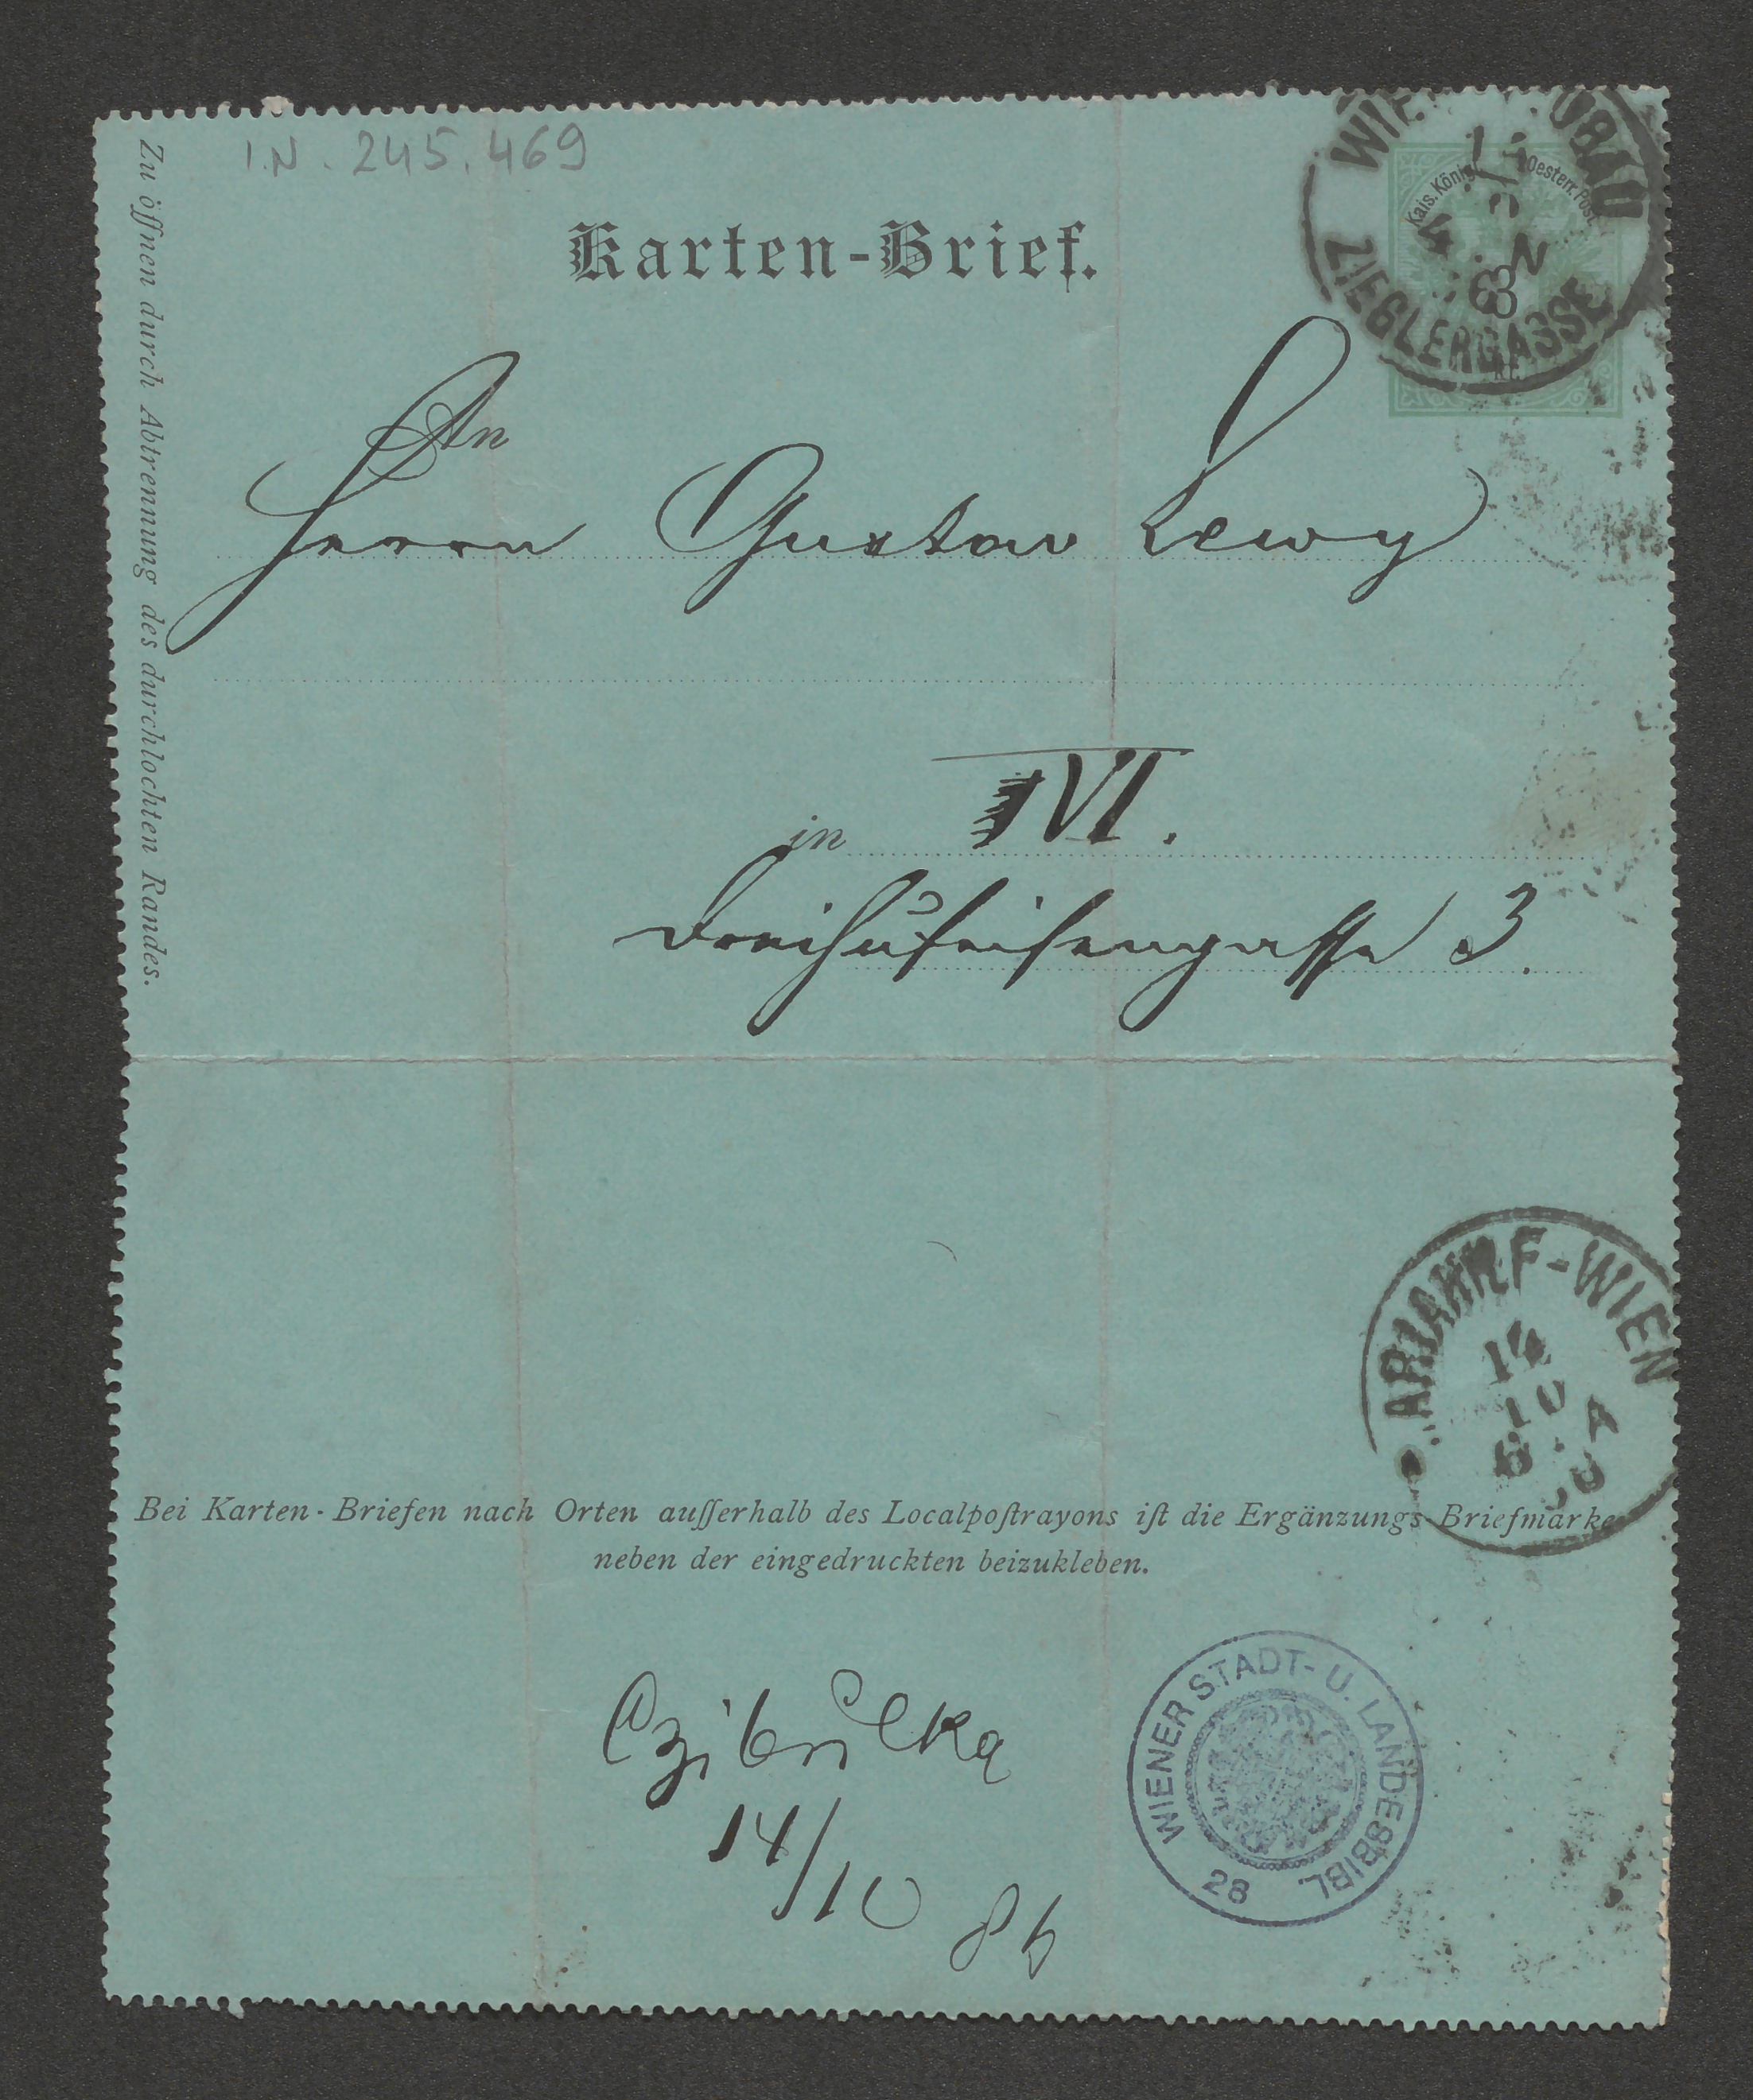 I.N. 245.469
Zu öffnen durch Abtrennung des durchlochten Randes.
Karten-Brief.
Kais. Königl. Oesterr. Post
ZIEGLERGASSE
An
Herrn Gustav Lewy
in VI.
Dreihufeisengasse 3.
ARIAHILF-WIEN
14
10
Bei Karten-Briefen nach Orten auſſerhalb des Localpoſtrayons iſt die Ergänzungs-Briefmarke
neben der eingedruckten beizukleben.
Czibulka
14/10 86
WIENER STADT- U. LANDESBIBL.
28